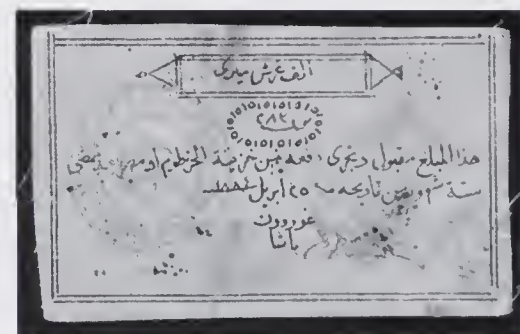 الف غرش ميرى
٢٨٢
هذا المبلغ مقبول ويجرى دفعه من خزينة الخرطوم او مصر بعد مضى
ستة شهور من تاريخه ٢٥ أبريل ١٨٨٤
غوردون
باشا